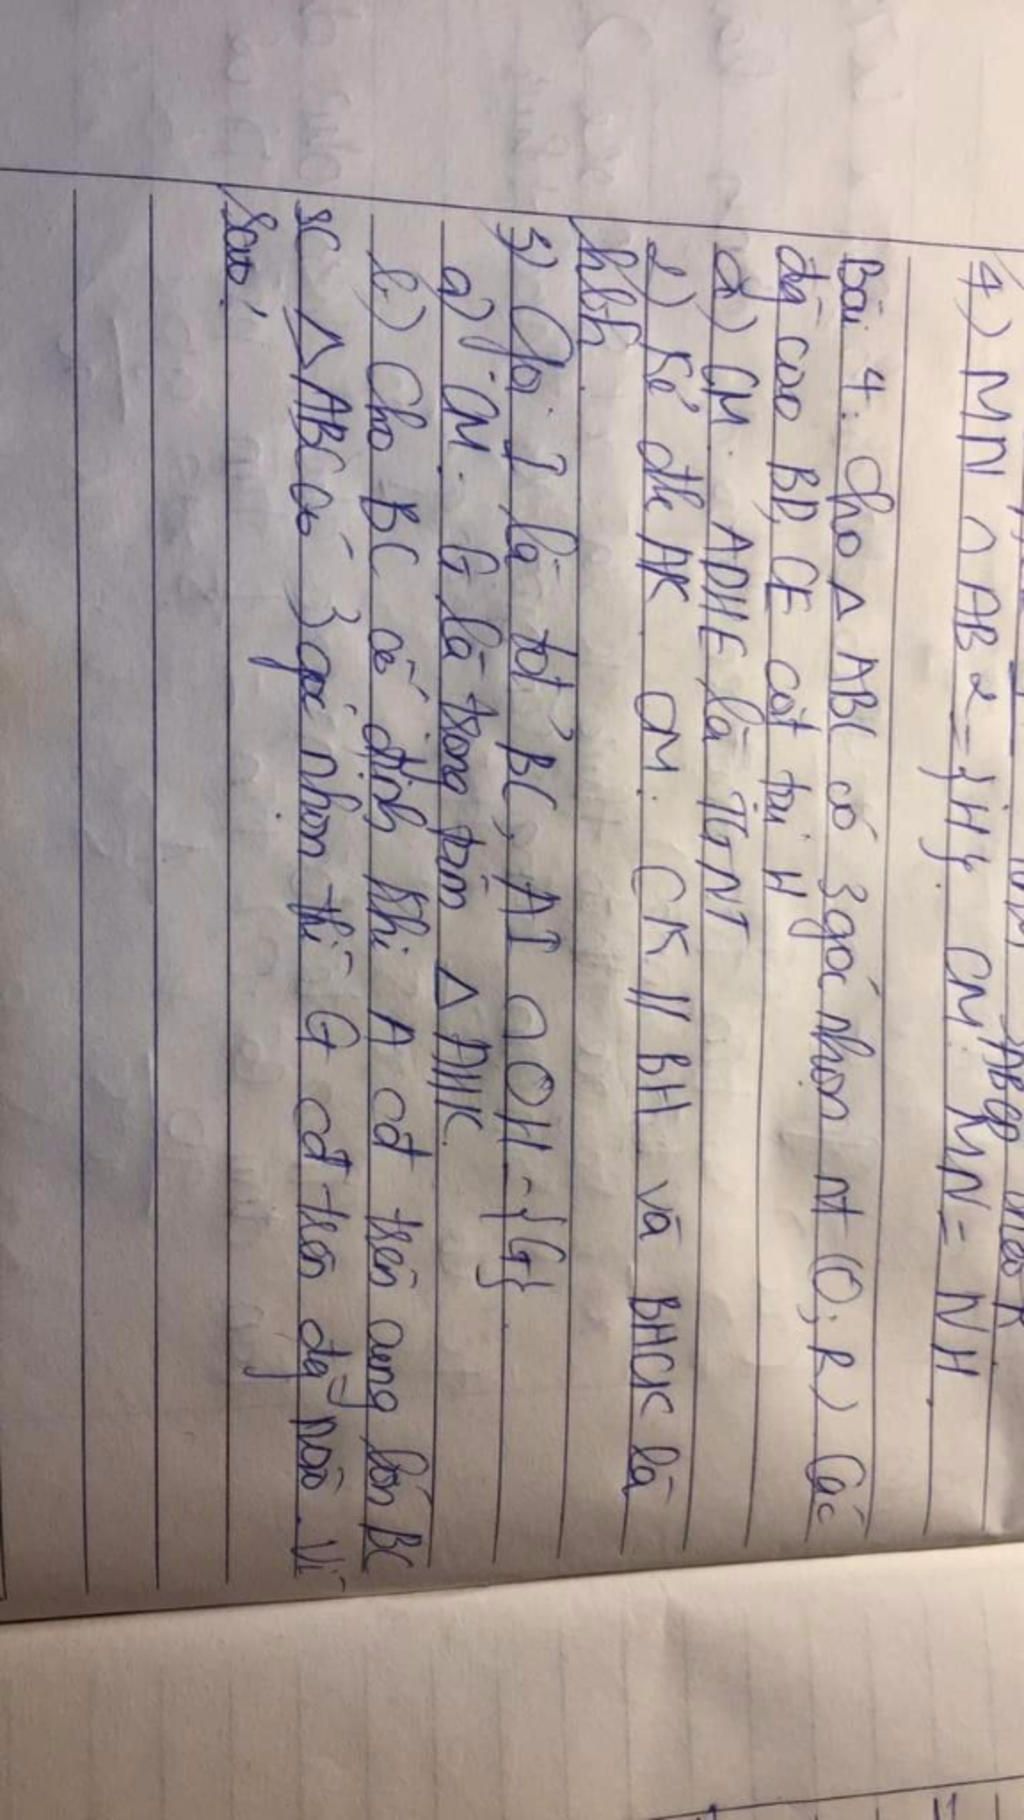 4) MN ∩ AB = {H}. CM: MN = NH.
Bài 4: Cho Δ ABC có 3 góc nhọn nt (O; R) Các
đg cao BD, CE cắt tại H
a) CM: ADHE là TGNT
2) Kẻ đk AK. CM: CK // BH và BHCK là
hbh.
3) Gọi I là tđ BC, AI ∩ OH = {G}.
a) CM: G là trọng tâm Δ AHK.
b) Cho BC cố định khi A cđ trên cung lớn BC
sc Δ ABC có 3 góc nhọn thì G cđ trên đg nào. Vì
sao!